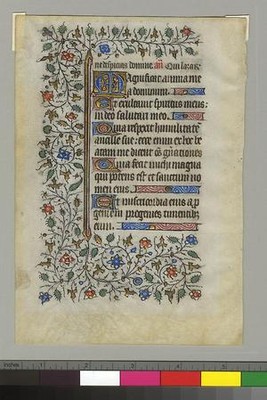 ne despicias domine. an̄ Qui lazarū.
Magnificat anima me
a dominum.
Et exultauit spiritus meus:
in deo salutari meo.
Quia respexit humilitatē
ancille sue: ecce enim ex hoc be
atam me dicent ōs gn̄ationes
Quia fecit michi magna
qui potens est et sanctum no
men eius.
Et misericordia eius a p̄
genie in progenies timentib;
eum.
1 2 3 4 5